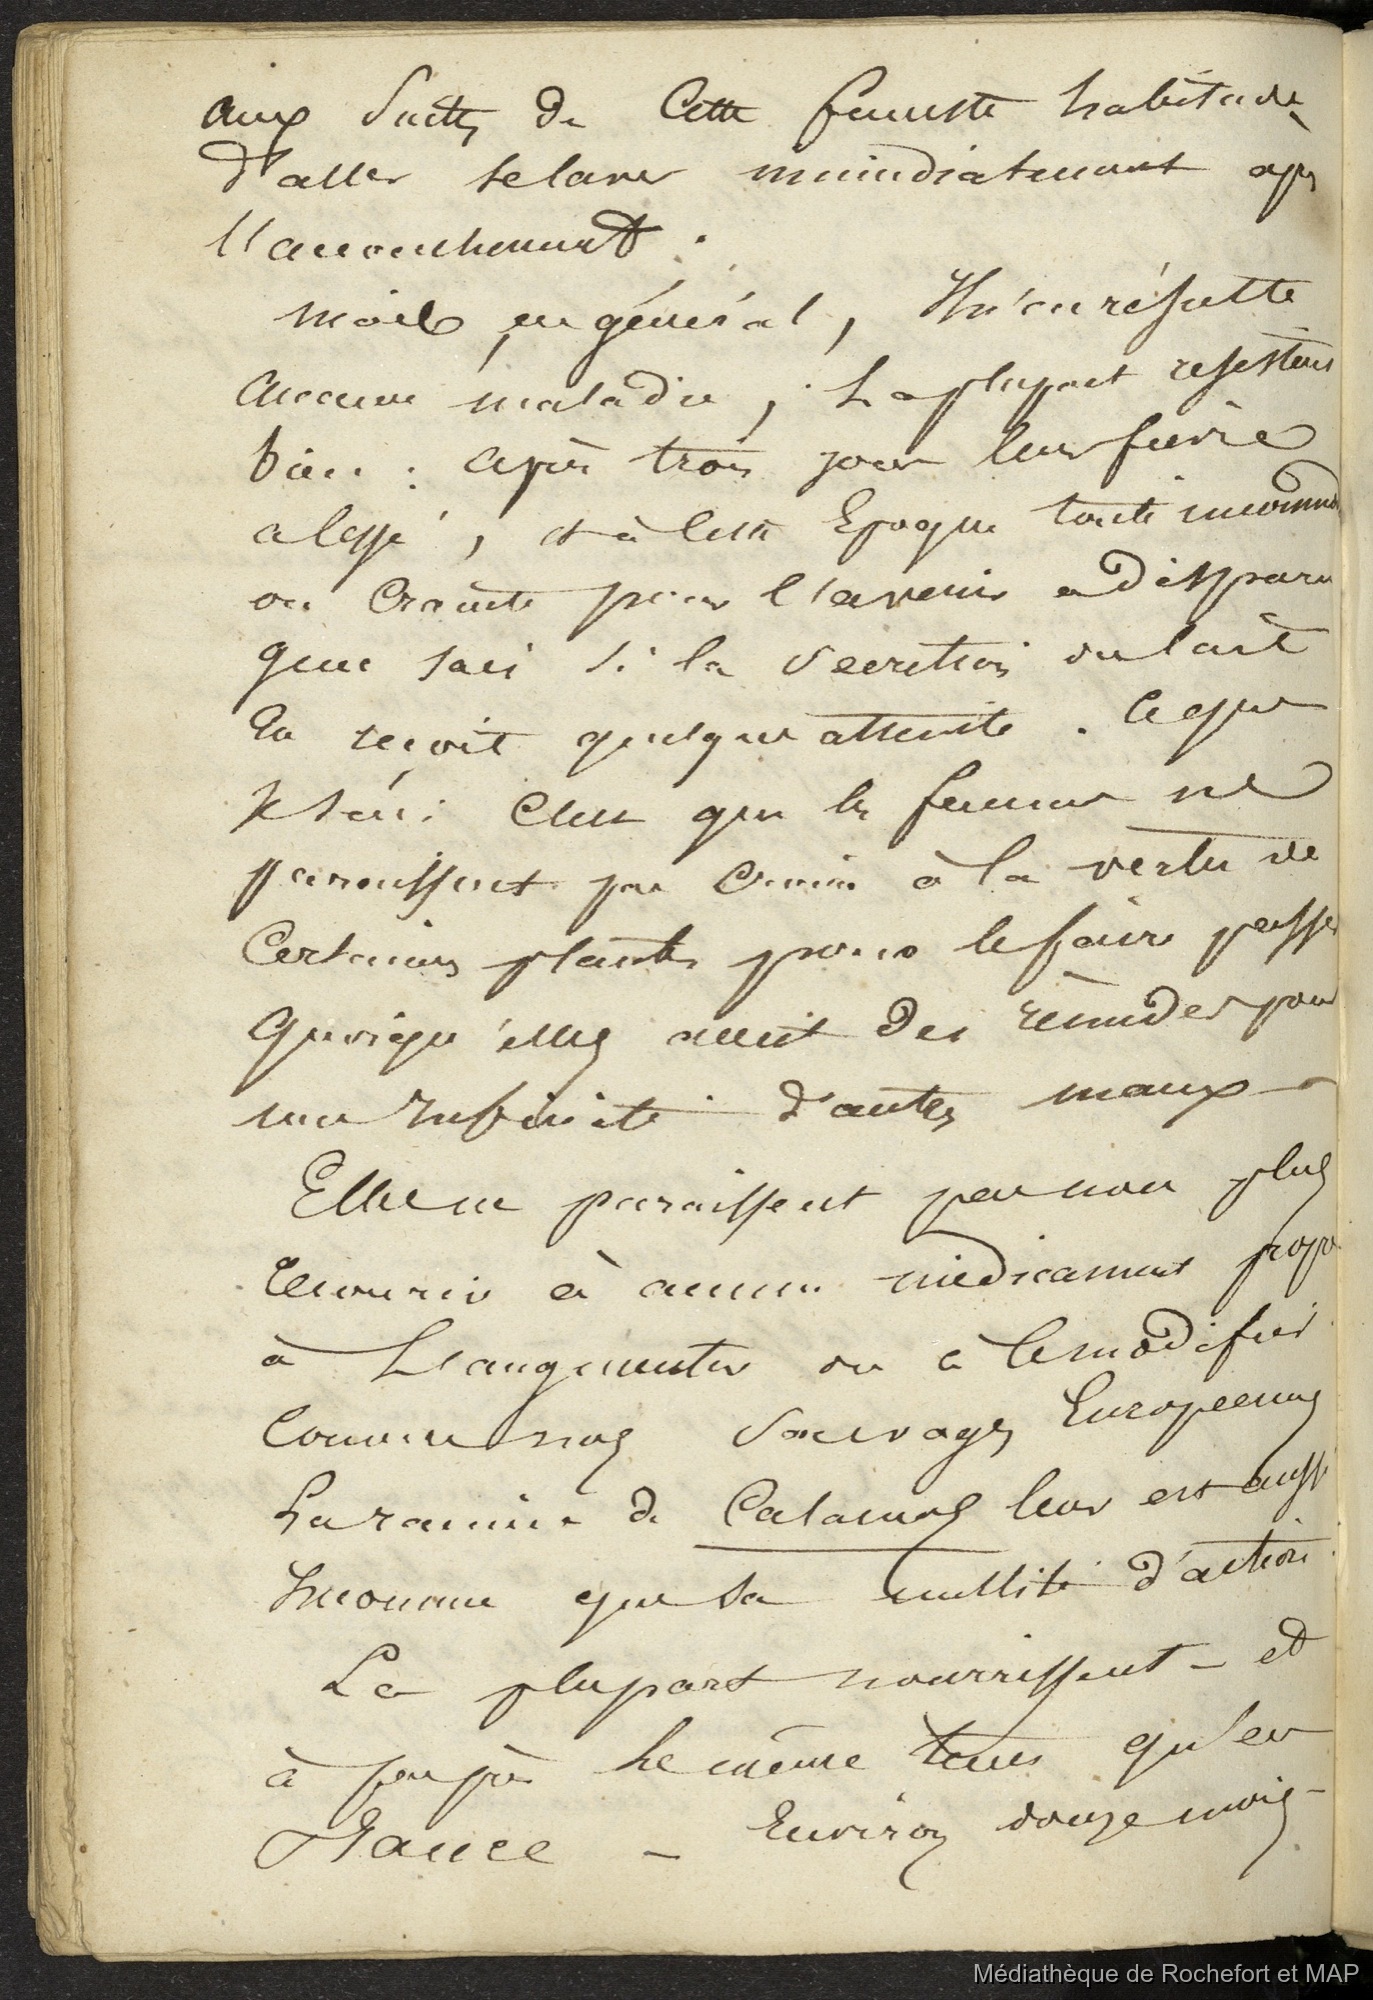 aux suites de cette funeste habitude
d'aller se laver immédiatement aps
l'accouchement.
mais en général, Il n'en résulte
aucune maladie, La plupart resistent
bien : après trois jours leur fièvre
a cessé, et à cette Epoque toute incommod
ou crainte pour l'avenir a disparu
que sais si la secretion du lait
en reçoit quelque atteinte. Ce que
je sais c'est que les femmes ne
paroissent pas croire à la vertu de
certaines plantes pour le faire passer
quoiqu'elles aient des remèdes pour
une Infinité d'autres maux
Elles ne paraissent pas non plus
recourir à aucun médicament propre
à L'augmenter ou à le modifier
comme nos sauvages Européennes
La racine de Calamus leur est aussi
Inconnue que sa nullité d'action
La plupart nourrissent - et
à peu près le même tems qu'en
France - Environ douze mois -
Médiathèque de Rochefort et MAP